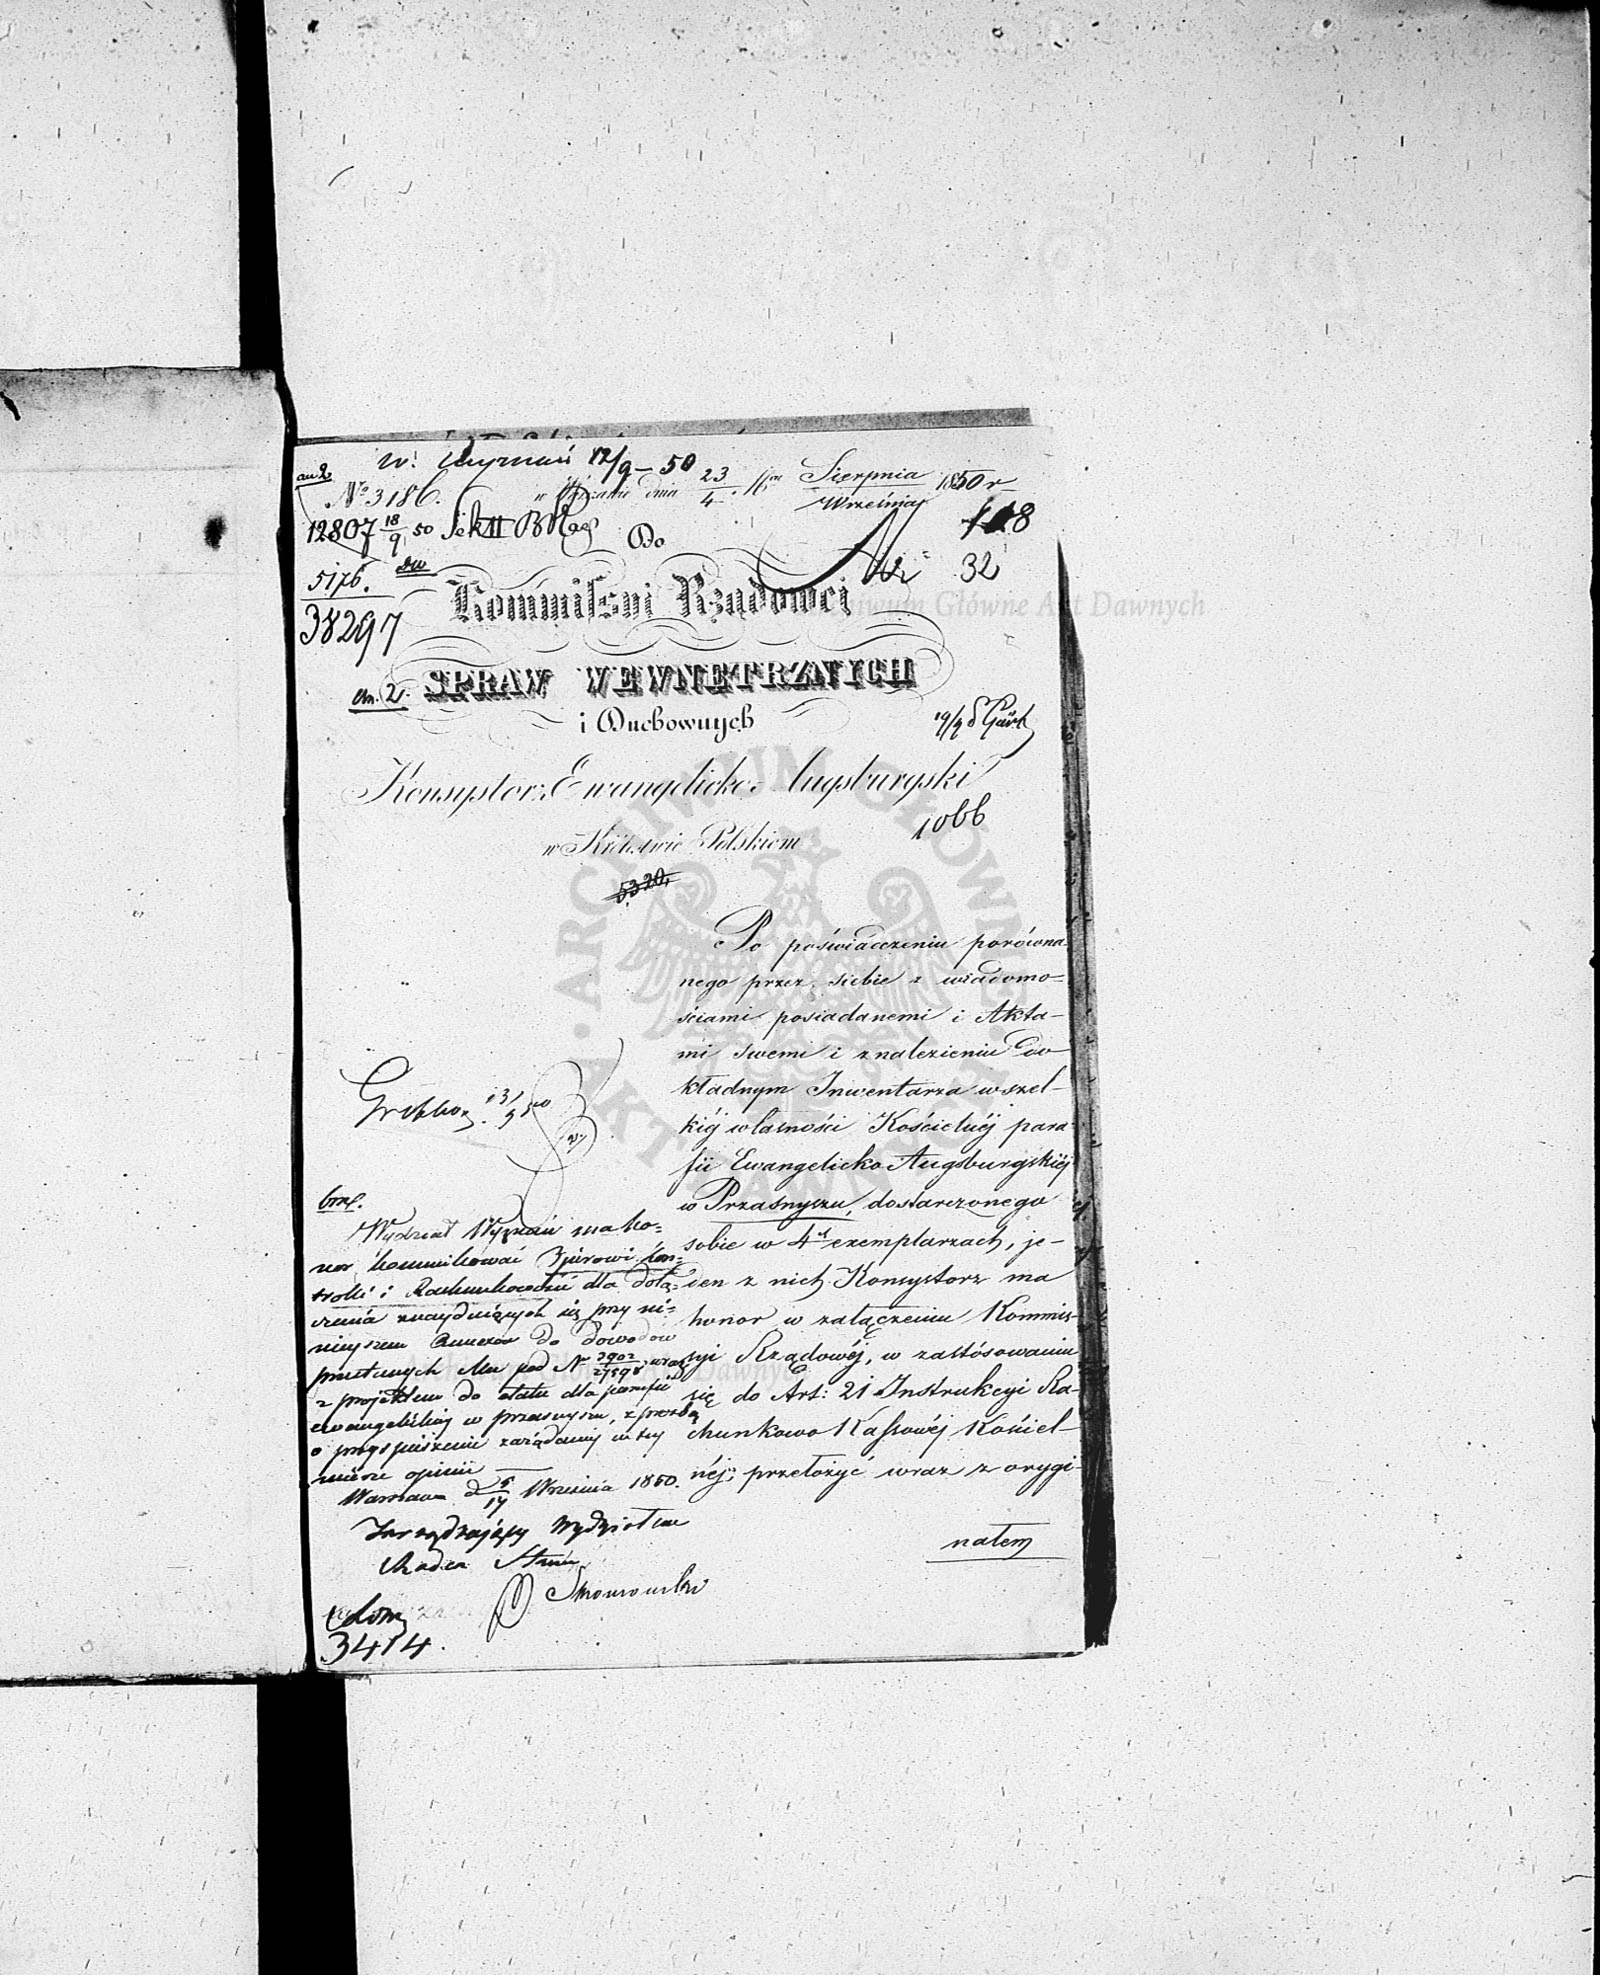 W. Wyznań 12/9 – 50
an 2
No 3186.
w Warszawie dnia 23/4 Sierpnia/Września 1850 r
12807 18/9 50 Sek II
Do
108
Nr 32
5176.
38297
Kommissyi Rządowej
an. 2.
SPRAW WEWNĘTRZNYCH
i Duchownych
19/9
Konsystorz Ewangelicko-Augsburgski
w Królestwie Polskiem
1066
5320,
Po poświadczeniu porówna-
nego przez siebie z wiadomo-
ściami posiadanemi i Akta-
mi swemi i znalezieniu do-
kładnym Inwentarza wszel-
kiéj własności Kościelnéj para-
fii Ewangelicko Augsburgskiéj
w Przasnyszu, dostarczonego
sobie w 4ch exemplarzach, je-
den z nich Konsystorz ma
honor w załączeniu Kommis-
syi Rządowéj, w zastósowaniu
się do Art: 21 Instrukcyi Ra-
chunkowo Kassowéj Kościel-
néj, przełożyć wraz z orygi-
nałem
Wydział Wyznań ma ho-
nor kommunikować Biórowi kon-
trolli i Rachunkowości dla dołą-
czenia znajdujących się przy ni-
niejszem Annexów do dowodów
przesłanych Mu pod No 2902/27598 wraz
z projektem do etatu dla parafii
ewangelickiéj w Przasnyszu, z prośbą
o przyspieszenie zażądanéj w téj
mierze opinii
Warszawa d 5/17 Września 1850.
Zarządzający Wydziałem
Radca Stanu
3414.
ARCHIWUM GŁÓWNE AKT DAWNYCH
Archiwum Główne Akt Dawnych
Archiwum Główne Akt Dawnych